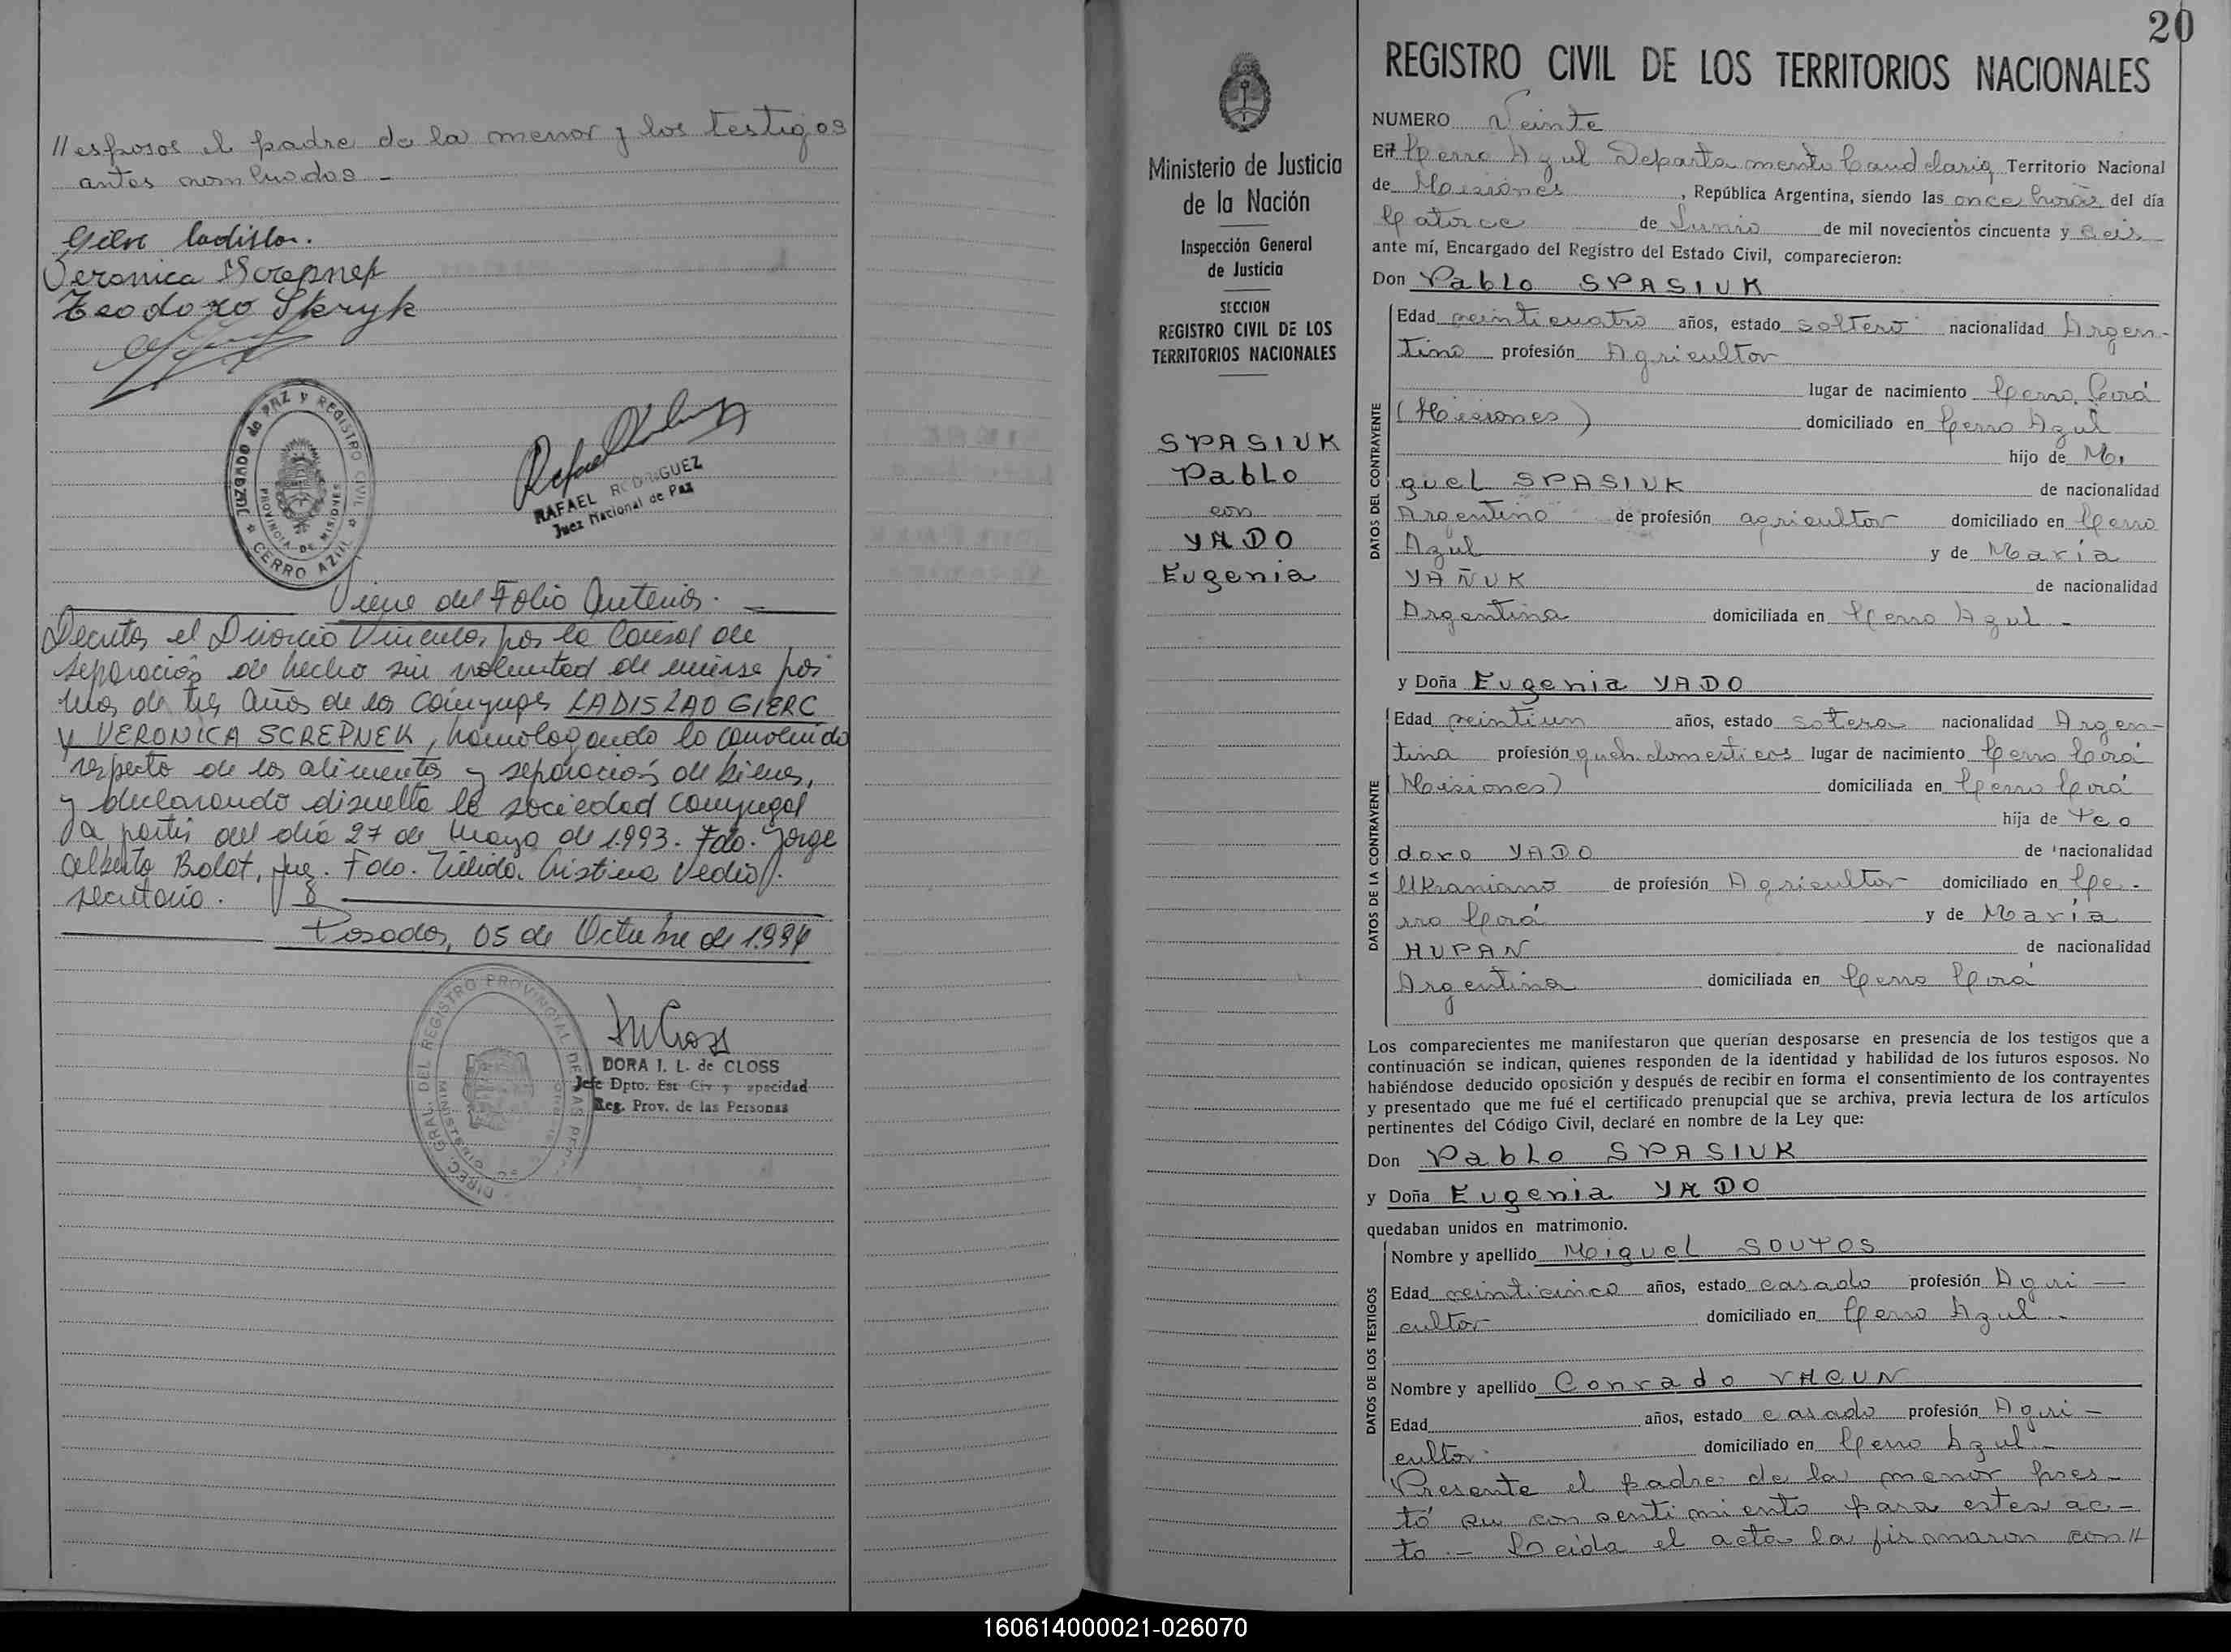 // esposos el padre de la menor y los testigos
antes nombrados -
Gierc Ladislao.
Veronica Screpnek
Teodoro Skryk
JUZGADO de PAZ y REGISTRO CIVIL
PROVINCIA DE MISIONES
CERRO AZUL
RAFAEL RODRIGUEZ
Juez Nacional de Paz
Viene del Folio Anterior.
Decretar el Divorcio Vincular por la Causal de
separación de hecho sin voluntad de unirse por
más de tres años de los cónyuges LADISLAO GIERC
y VERONICA SCREPNEK, homologando lo convenido
respecto de los alimentos y separación de bienes,
y declarando disuelta la sociedad conyugal
a partir del día 27 de Mayo de 1.993. Fdo. Jorge
Alberto Bolot, Juez. Fdo. Cristina Vedia.
secretaria.
Posadas, 05 de Octubre de 1.994
DIREC. GRAL. DEL REGISTRO PROVINCIAL DE LAS
DORA I. L. de CLOSS
Jefe Dpto. Est Civ y apacidad
Reg. Prov. de las Personas
20
Ministerio de Justicia
de la Nación
Inspección General
de Justicia
SECCION
REGISTRO CIVIL DE LOS
TERRITORIOS NACIONALES
SPASIUK
Pablo
con
YADO
Eugenia
REGISTRO CIVIL DE LOS TERRITORIOS NACIONALES
NUMERO Veinte
En Cerro Azul Departamento Candelaria, Territorio Nacional
de Misiones, República Argentina, siendo las once horas del día
Catorce de Junio de mil novecientos cincuenta y seis
ante mí, Encargado del Registro del Estado Civil, comparecieron:
Don Pablo SPASIUK
DATOS DEL CONTRAYENTE
Edad veinticuatro años, estado soltero nacionalidad Argen-
tino profesión Agricultor
lugar de nacimiento Cerro Corá
(Misiones) domiciliado en Cerro Azul
hijo de Mi
guel SPASIUK de nacionalidad
Argentino de profesión agricultor domiciliado en Cerro
Azul y de María
YAÑUK de nacionalidad
Argentina domiciliada en Cerro Azul -
y Doña Eugenia YADO
DATOS DE LA CONTRAYENTE
Edad veintiun años, estado soltera nacionalidad Argen-
tina profesión queh. domesticos lugar de nacimiento Cerro Corá
Misiones) domiciliada en Cerro Corá
hija de Teo
doro YADO de nacionalidad
Ukraniano de profesión Agricultor domiciliado en Ce-
rro Corá y de María
HUPAN de nacionalidad
Argentina domiciliada en Cerro Corá
Los comparecientes me manifestaron que querían desposarse en presencia de los testigos que a
continuación se indican, quienes responden de la identidad y habilidad de los futuros esposos. No
habiéndose deducido oposición y después de recibir en forma el consentimiento de los contrayentes
y presentado que me fué el certificado prenupcial que se archiva, previa lectura de los artículos
pertinentes del Código Civil, declaré en nombre de la Ley que:
Don Pablo SPASIUK
y Doña Eugenia YADO
quedaban unidos en matrimonio.
DATOS DE LOS TESTIGOS
Nombre y apellido Miguel SOUTOS
Edad veinticinco años, estado casado profesión Agri-
cultor domiciliado en Cerro Azul -
Nombre y apellido Conrado
Edad años, estado casado profesión Agri-
cultor domiciliado en Cerro Azul -
Presente el padre de la menor pres-
tó su consentimiento para este ac-
to.- Leída el acta la firmaron con //
160614000021-026070